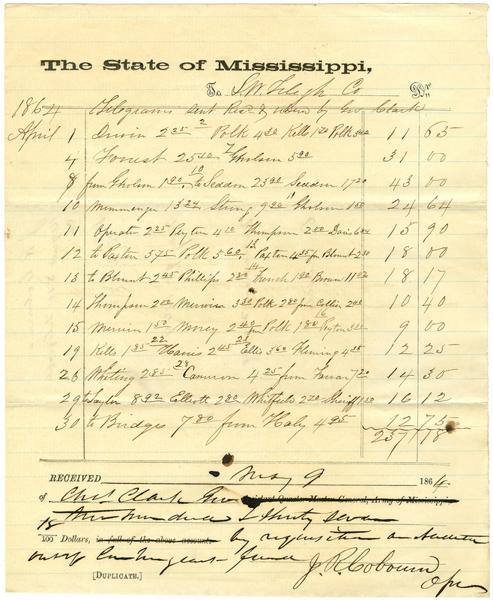 The State of Mississippi,
To S.W. Telegh Co Dr
1864 Telegrams sent Recd & by Gov Clark
April 1 2 35 2 Polk 4 30 Kells Polk 11 65
4 Forrest 25 7 Gholson 5 00 31 00
8 from Gholson 1 90 10 to Seddon 23 90 Seddon 17 20 43 00
10 Memminger 13 24 9 90 11 Gholson 24 64
11 Operator 2 25 Peyton 4 10 Thompson 2 00 15 90
12 to Paxton 5 75 Polk 5 60 Paxton 4 35 fm Blount 2 30 18 00
13 to Blount 2 45 Phillips 2 80 14 French 1 90 Brown 11 02 18 17
14 Thompson 2 00 Merwin 3 60 Polk 2 80 from Collier 2 00 10 40
15 Merwin 1 50 Morey 2 40 Polk 1 80 16 Peyton 9 00
19 Kells 1 35 22 Harris 2 45 25 Ellis 3 60 Fleming 4 35 12 25
26 Whiting 2 85 28 Cameron 4 25 from Farrar 7 20 14 30
29 to Taylor 8 92 Elliott 2 80 Whitfield 2 20 Sheriff 16 12
30 to Bridges 7 80 from Haly 4 95 12 75
237 18
RECEIVED May 9 1864
of Chas Clark Gov Assistant Quarter-Master General, Army of Mississippi,
18 Two hundred & thirty seven
100 Dollars, in full of the above accounts. by requisition on Auditor
out of fund J. R. Coboun
[DUPLICATE.] Opr